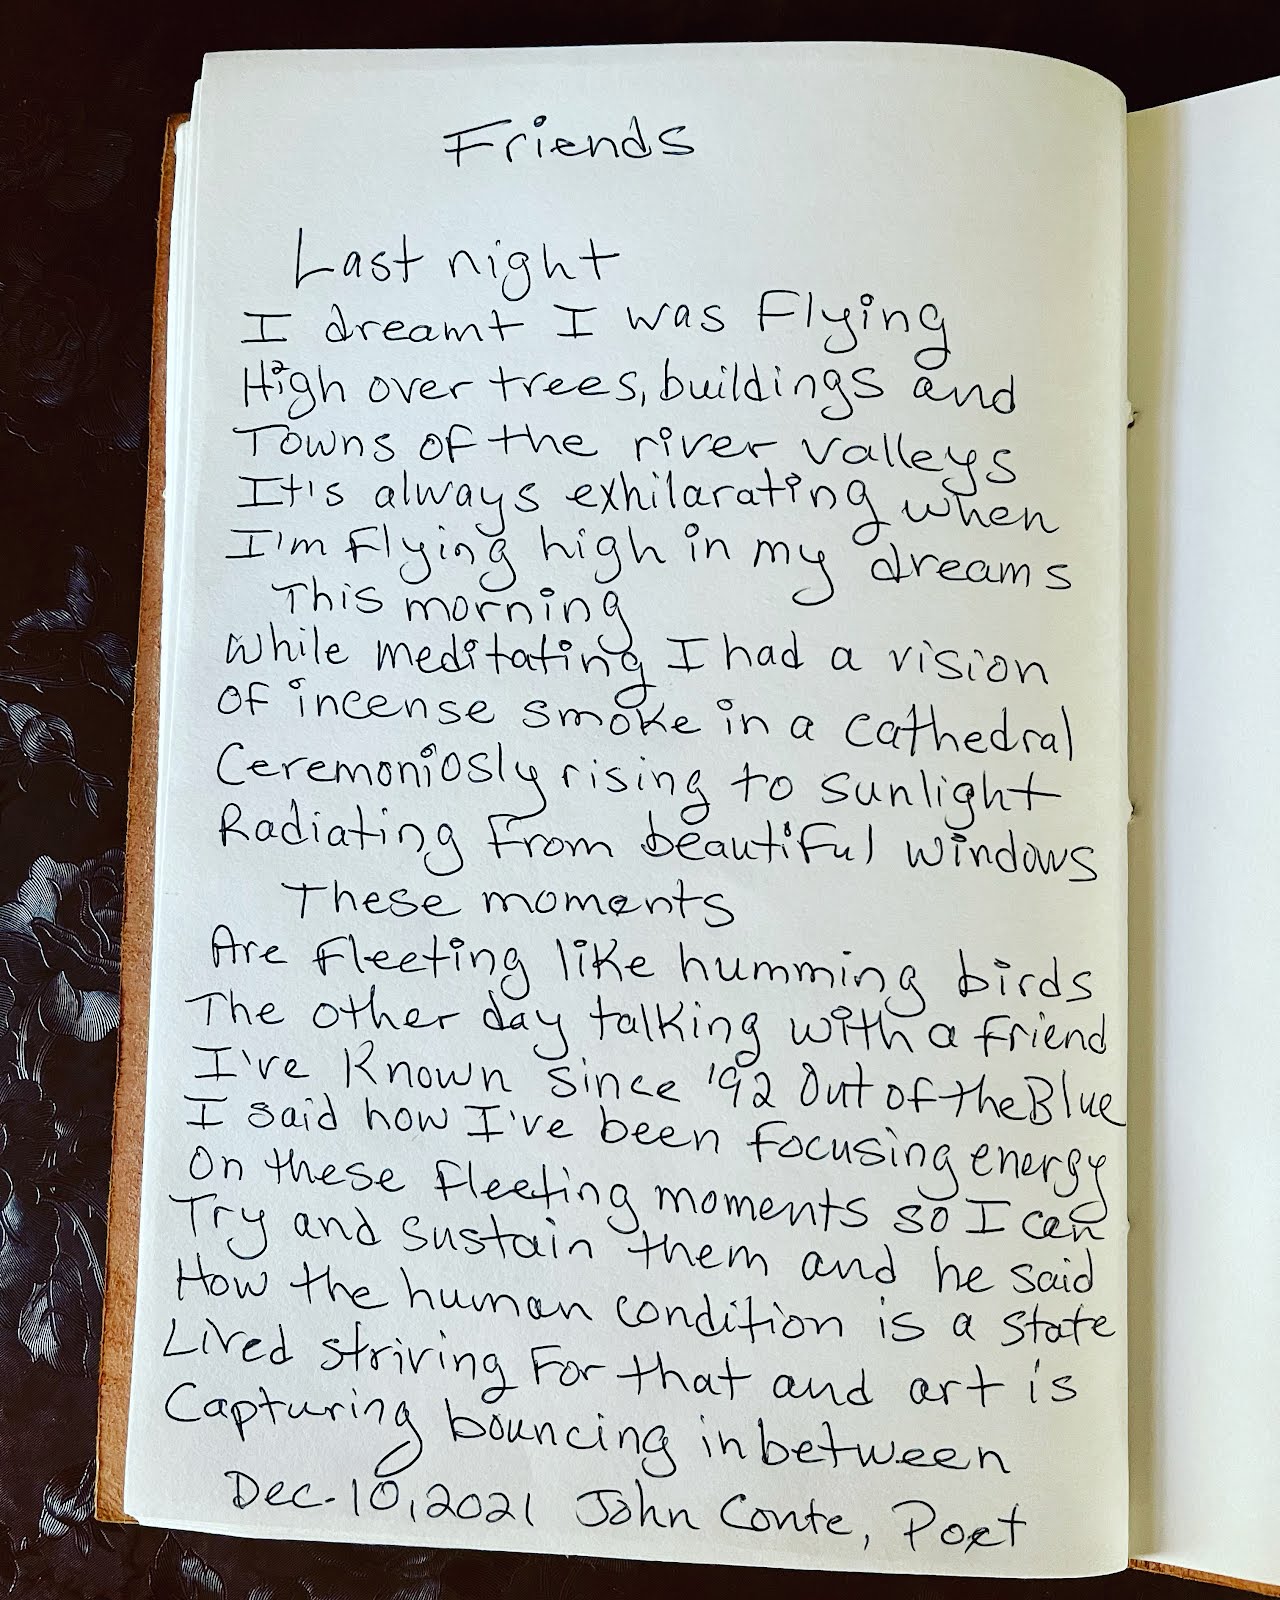 Friends
Last night
I dreamt I was Flying
High over trees, buildings and
Towns of the river valleys
It's always exhilarating when
I'm Flying high in my dreams
This morning
While meditating I had a vision
Of incense smoke in a cathedral
Ceremoniosly rising to sunlight
Radiating From beautiful windows
These moments
Are Fleeting like humming birds
The other day talking with a friend
I've Known since '92 Out of the Blue
I said how I've been Focusing energy
On these Fleeting moments so I can
Try and sustain them and he said
How the human condition is a state
Lived striving For that and art is
Capturing bouncing in between
Dec. 10, 2021 John Conte, Poet